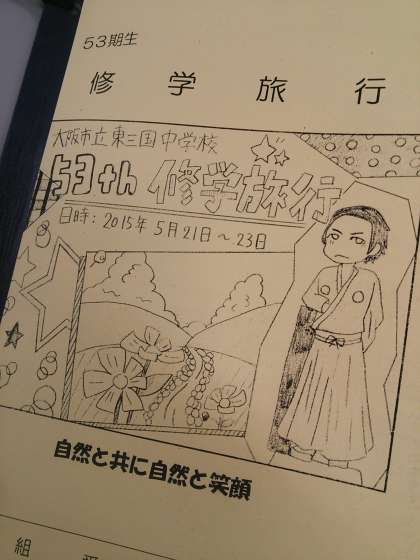 53期生
修学旅行
大阪市立東三国中学校
53th 修学旅行
日時:2015年5月21日～23日
自然と共に自然と笑顔
組